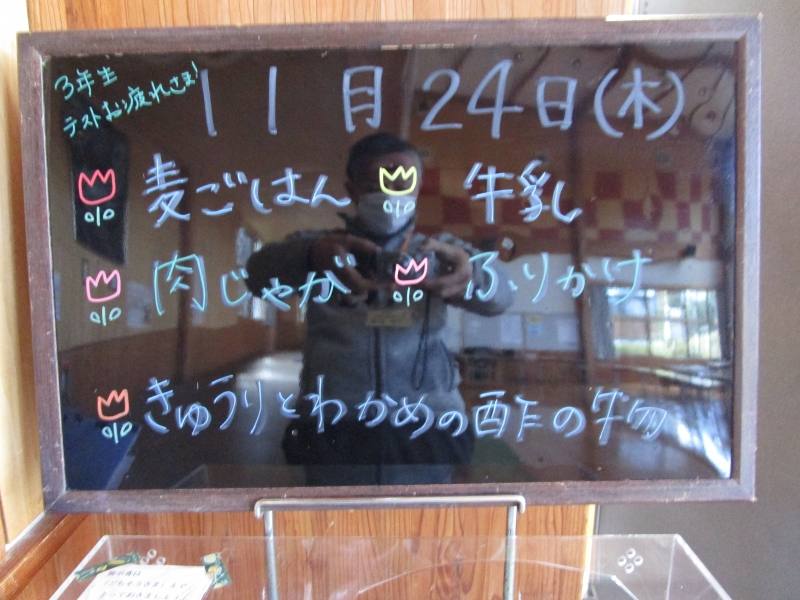 3年生
テストお疲れさま!
11月24日(木)
麦ごはん 牛乳
肉じゃが ふりかけ
きゅうりとわかめの酢の物